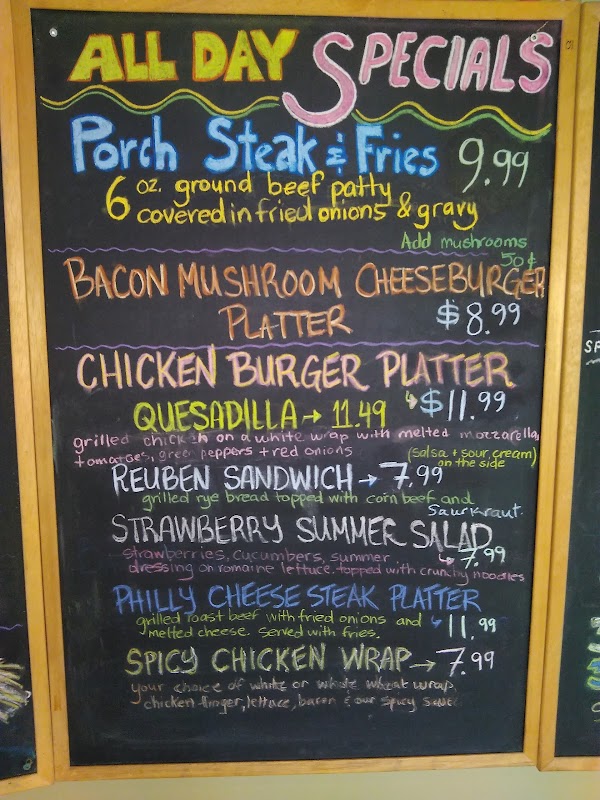 ALL DAY SPECIALS
Porch Steak & Fries 9.99
6 oz. ground beef patty
covered in fried onions & gravy
Add mushrooms
50¢
BACON MUSHROOM CHEESEBURGER
PLATTER $8.99
CHICKEN BURGER PLATTER
QUESADILLA → 11.49 ↳ $11.99
grilled chicken on a white wrap with melted mozzarella,
tomatoes, green peppers + red onions (salsa + sour cream)
on the side
REUBEN SANDWICH → 7.99
grilled rye bread topped with corn beef and
Saurkraut.
STRAWBERRY SUMMER SALAD
strawberries, cucumbers, summer ↳ 7.99
dressing on romaine lettuce. topped with crunchy noodles
PHILLY CHEESE STEAK PLATTER
grilled roast beef with fried onions and → 11.99
melted cheese. served with fries.
SPICY CHICKEN WRAP → 7.99
your choice of white or whole wheat wrap,
chicken finger, lettuce, bacon & our spicy